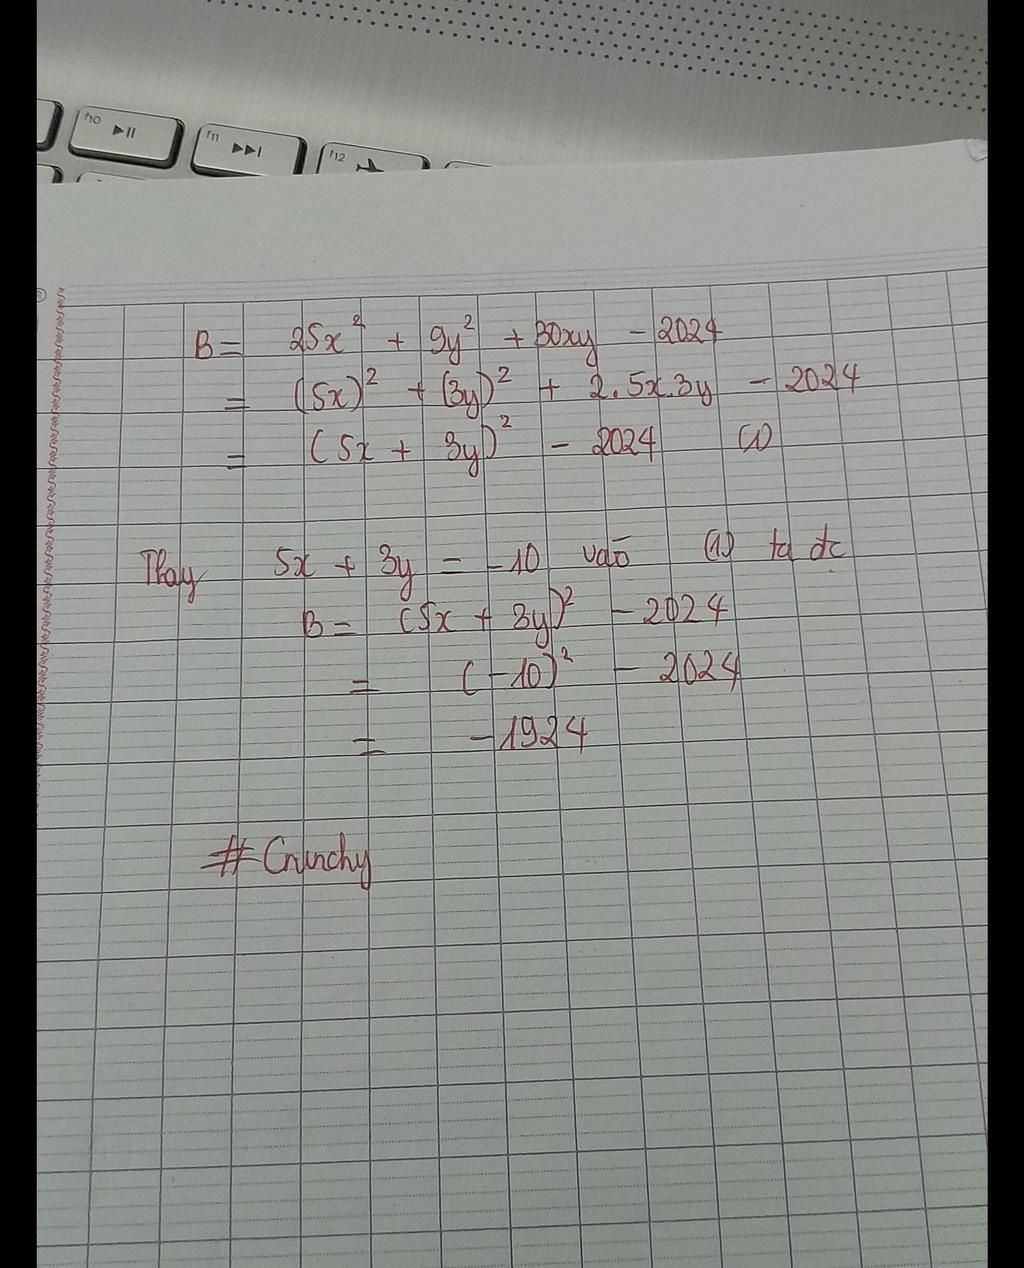 f10
f11
f12
B = 25x² + 9y² + 30xy - 2024
= (5x)² + (3y)² + 2.5x.3y - 2024
= (5x + 3y)² - 2024 (1)
Thay 5x + 3y = -10 vào (1) ta dc
B = (5x + 3y)² - 2024
= (-10)² - 2024
= -1924
#Crunchy